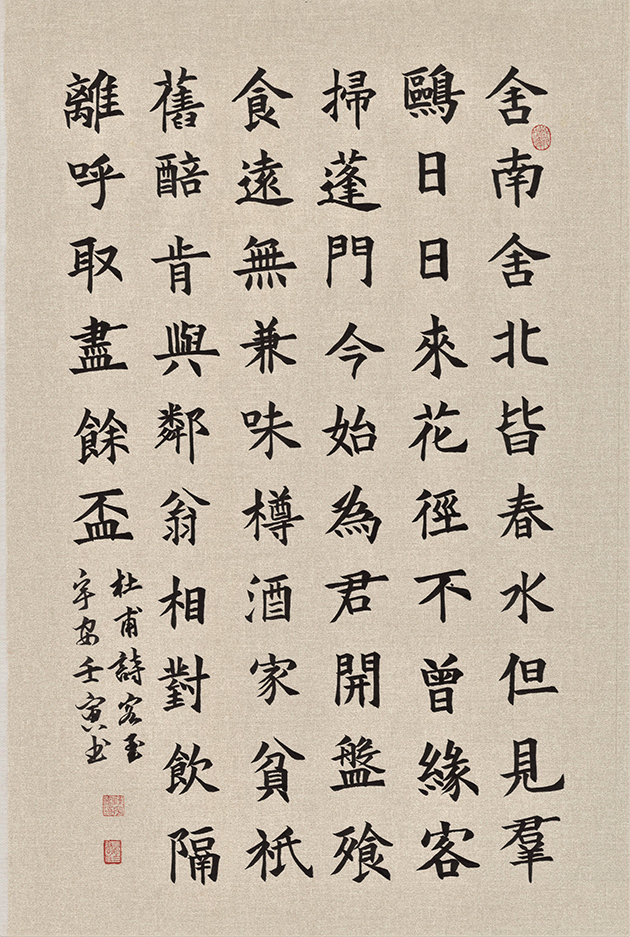 舍南舍北皆春水但見羣
鷗日日來花徑不曾緣客
掃蓬門今始為君開盤飱
食遠無兼味樽酒家貧祇
舊醅肯與鄰翁相對飲隔
離呼取盡餘盃
杜甫詩客至
宇安壬寅书